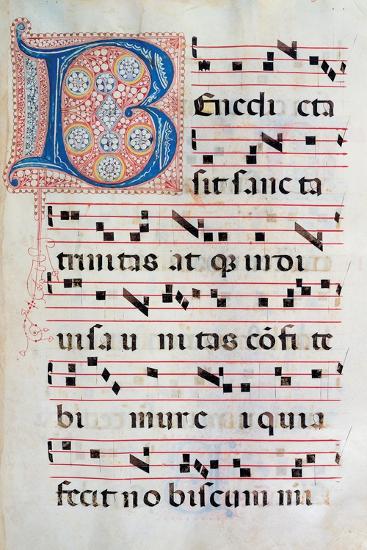 Benedicta
sit sancta
trinitas at q̄ indi
uisa u nitas cōfi te
bi mur e i quia
fecit no biscum mi